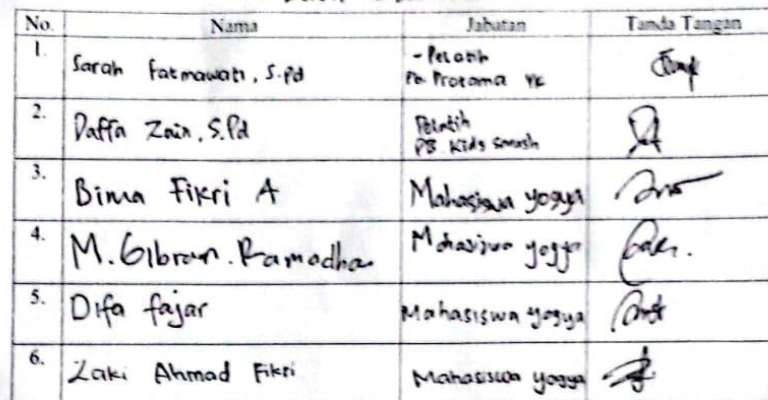 No. Nama Jabatan Tanda Tangan
1. Sarah Fatmawati, S.Pd - Pelatih
PB. Pratama YK
2. Daffa Zain, S.Pd Pelatih
PB. Kids Smash
3. Bima Fikri A Mahasiswa yogya
4. M. Gibran. Ramadha Mahasiswa yogya
5. Difa fajar Mahasiswa yogya
6. Zaki Ahmad Fikri Mahasiswa yogya